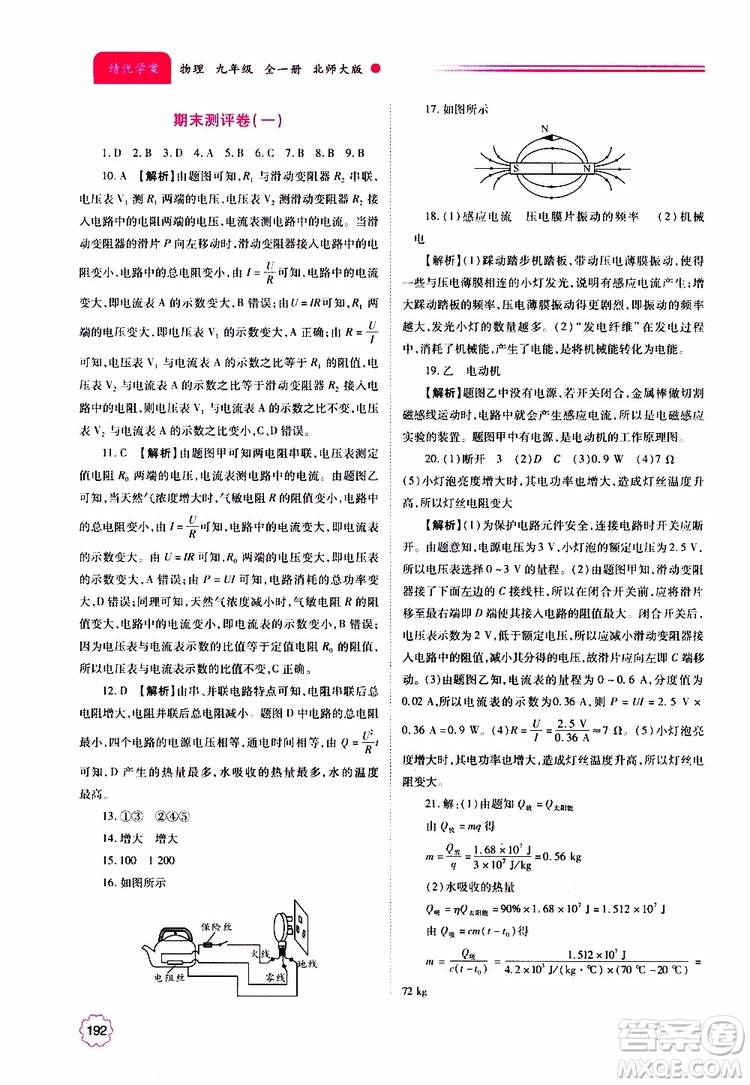 绩优学案 物理 九年级 全一册 北师大版
期末测评卷(一)
1. D 2. B 3. D 4. A 5. C 6. B 7. B 8. B 9. B
10. A 【解析】由题图可知,R₁与滑动变阻器 R₂ 串联,
电压表 V₁ 测 R₁ 两端的电压,电压表 V₂ 测滑动变阻器 R₂ 接
入电路中的电阻两端的电压,电流表测电路中的电流。当滑
动变阻器的滑片 P 向左移动时,滑动变阻器接入电路中的
电阻变小,电路中的总电阻变小,由 I = U/R 可知,电路中的电流
变大,即电流表 A 的示数变大,B 错误;由 U = IR 可知,R₁ 两
端的电压变大,即电压表 V₁ 的示数变大,A 正确;由 R = U/I
可知,电压表 V₁ 与电流表 A 的示数之比等于 R₁ 的阻值,电
压表 V₂ 与电流表 A 的示数之比等于滑动变阻器接入电路
中的电阻,则电压表 V₁ 与电流表 A 的示数之比不变,电压表
V₂ 与电流表 A 的示数之比变小,C、D 错误。
11. C 【解析】由题图甲可知两电阻串联,电压表测定
值电阻 R₀ 两端的电压,电流表测电路中的电流。由题图乙
可知,当天然气浓度增大时,气敏电阻 R 的阻值变小,电路中
的总电阻变小,由 I = U/R 可知,电路中的电流变大,即电流表
的示数变大。由 U = IR 可知,R₀ 两端的电压变大,即电压表
的示数变大,A 错误;由 P = UI 可知,电路消耗的总功率变
大,B 错误;同理可知,天然气浓度减小时,气敏电阻 R 的阻
值变大,电压表与电流表的示数均变小,C 正确;由 R = U/I 可知,
因为电压表与电流表示数的比值等于定值电阻 R₀ 的阻值,
所以电压表与电流表示数的比值不变,D 错误。
12. D 【解析】由串、并联电路特点可知,串联时总电
阻变大,并联时总电阻减小。题图 D 中两电阻并联,总电阻
最小,四个电路的电源电压相等,通电时间相同,由 Q = U²/R t
可知,D 产生的热量最多,水吸收的热量最多,水的温度
最高。
13. ①③ ②④⑤
14. 增大 增大
15. 100 1 200
16. 如图所示
保险丝
火线
地线
零线
电阻丝
192
17. 如图所示
N
S N
18. (1)感应电流 压电膜片振动的频率 (2)机械
电
【解析】(1)踩动踏步机踏板,带动压电薄膜振动,使得
一些与压电薄膜相连的小灯发光,说明有感应电流产生;增
大踩动踏板的频率,压电薄膜振动加剧,即振动的频率
越大,发光小灯的数量越多。(2)“发电纤维”在发电过程
中,消耗了机械能,产生了电能,是将机械能转化为电能。
19. 乙 电动机
【解析】题图乙中没有电源,若开关闭合,金属棒做切割
磁感线运动时,电路中就会产生感应电流,所以是电磁感应
实验的装置。题图甲中有电源,是电动机的工作原理图。
20. (1)断开 3 (2)D C (3)0.9 W (4)7 Ω
(5)小灯泡亮度增大时,灯丝的实际电功率增大,灯丝温度升
高,所以灯丝电阻变大
【解析】(1)为保护电路元件安全,连接电路时开关应断
开。由题意知,电源电压为 3 V,小灯泡的额定电压为 2.5 V,
所以电压表选择 0 ~ 3 V 的量程。(2)由题图甲知,滑动变阻
器接入电路的是下面左边的 C 接线柱,闭合开关前,应将滑片
P 移至最右端即 D 端使其接入电路的阻值最大。闭合开关
后,电压表示数为 2.2 V,低于额定电压,所以应减小滑动变阻器
接入电路中的电阻,以减小其分得的电压,故滑片应向 C 端移
动。(3)由题图丙可知,电流表的量程为 0 ~ 0.6 A,分度值为
0.02 A,所以电流表的示数为0.36 A,则 P = UI = 2.5 V ×
0.36 A = 0.9 W。(4)R = U/I = 2.5 V/0.36 A ≈ 7 Ω。(5)小灯泡亮
度增大时,灯丝的实际电功率增大,灯丝温度升高,所以灯丝电
阻变大。
21. 解:(1)由题知 Q放 = Q太阳能
由 Q放 = mq 得
m = Q放/q = 1.68 × 10⁷ J/3 × 10⁷ J/kg = 0.56 kg
(2)水吸收的热量
Q吸 = ηQ太阳能 = 90% × 1.68 × 10⁷ J = 1.512 × 10⁷ J
由 Q吸 = cm(t - t₀)得
m = Q吸/c(t - t₀) = 1.512 × 10⁷ J/4.2 × 10³ J/(kg · ℃) × (70 ℃ - 20 ℃) =
72 kg
答案圈
MXQE.COM